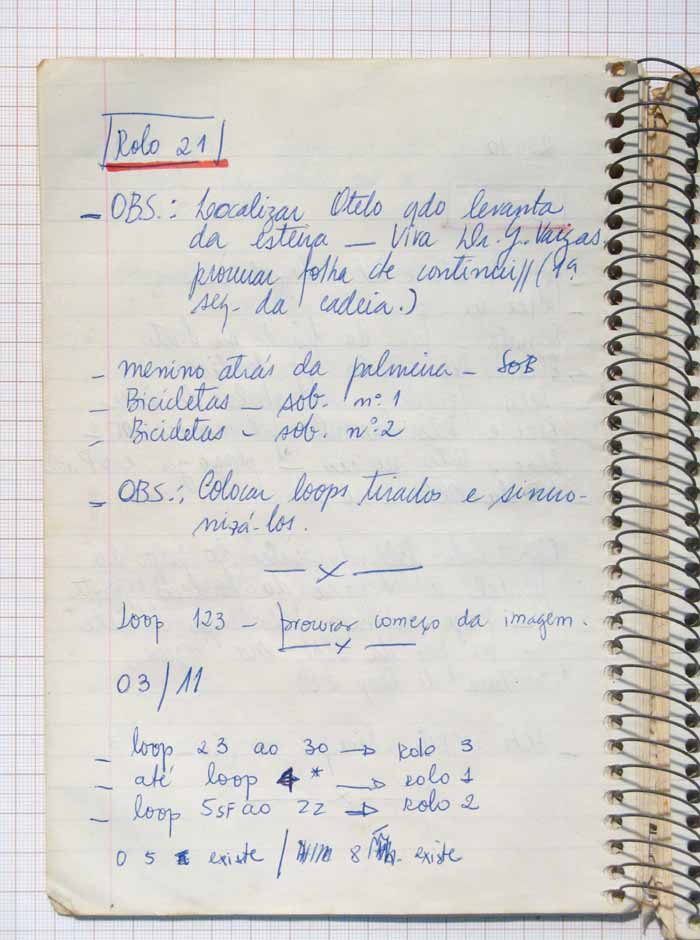 Rolo 21
- OBS.: Localizar Otelo qdo levanta
da esteira - Viva Dr. G. Vargas.
procurar folha de continui// (1ª
seq. da cadeia.)
- menino atrás da palmeira - SOB
- Bicicletas - sob. nº 1
- Bicicletas - sob. nº 2
- OBS.: Colocar loops tirados e sincro-
nizá-los.
— x —
Loop 123 - procurar começo da imagem.
— x —
03/11
- loop 23 ao 30 → Rolo 3
- até loop 4 * → rolo 1
- loop 5SF ao 22 → Rolo 2
O 5 existe / 8 existe